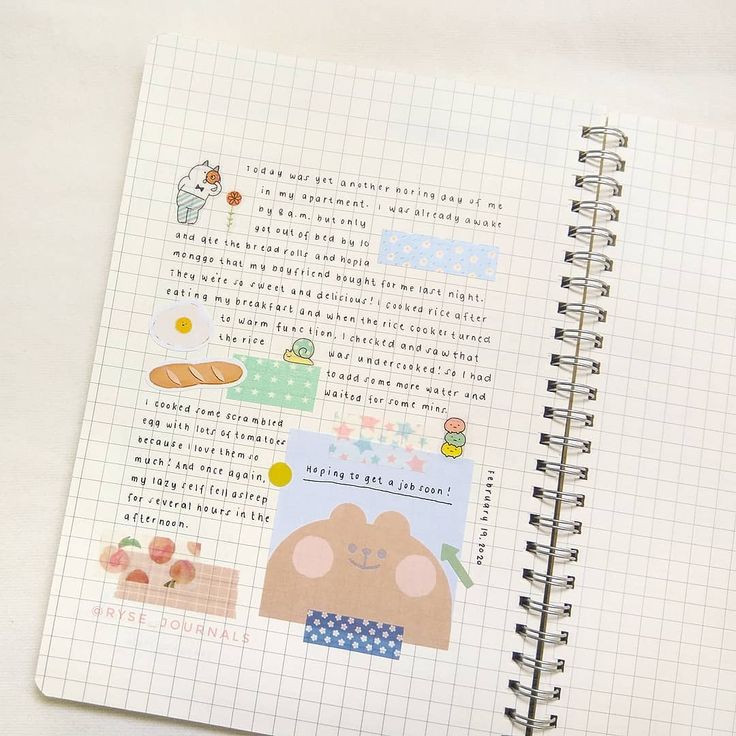 Today was yet another boring day of me
in my apartment. I was already awake
by 8 a.m. but only
got out of bed by 10
and ate the bread rolls and hopia
monggo that my boyfriend bought for me last night.
They we're so sweet and delicious! I cooked rice after
eating my breakfast and when the rice cooker turned
to warm function, I checked and saw that
the rice was undercooked! So I had
to add some more water and
waited for some mins.
I cooked some scrambled
egg with lots of tomatoes
because I love them so
much! And once again,
my lazy self fell asleep
for several hours in the
afternoon.
Hoping to get a job soon!
February 19, 2020
@RYSE_JOURNALS